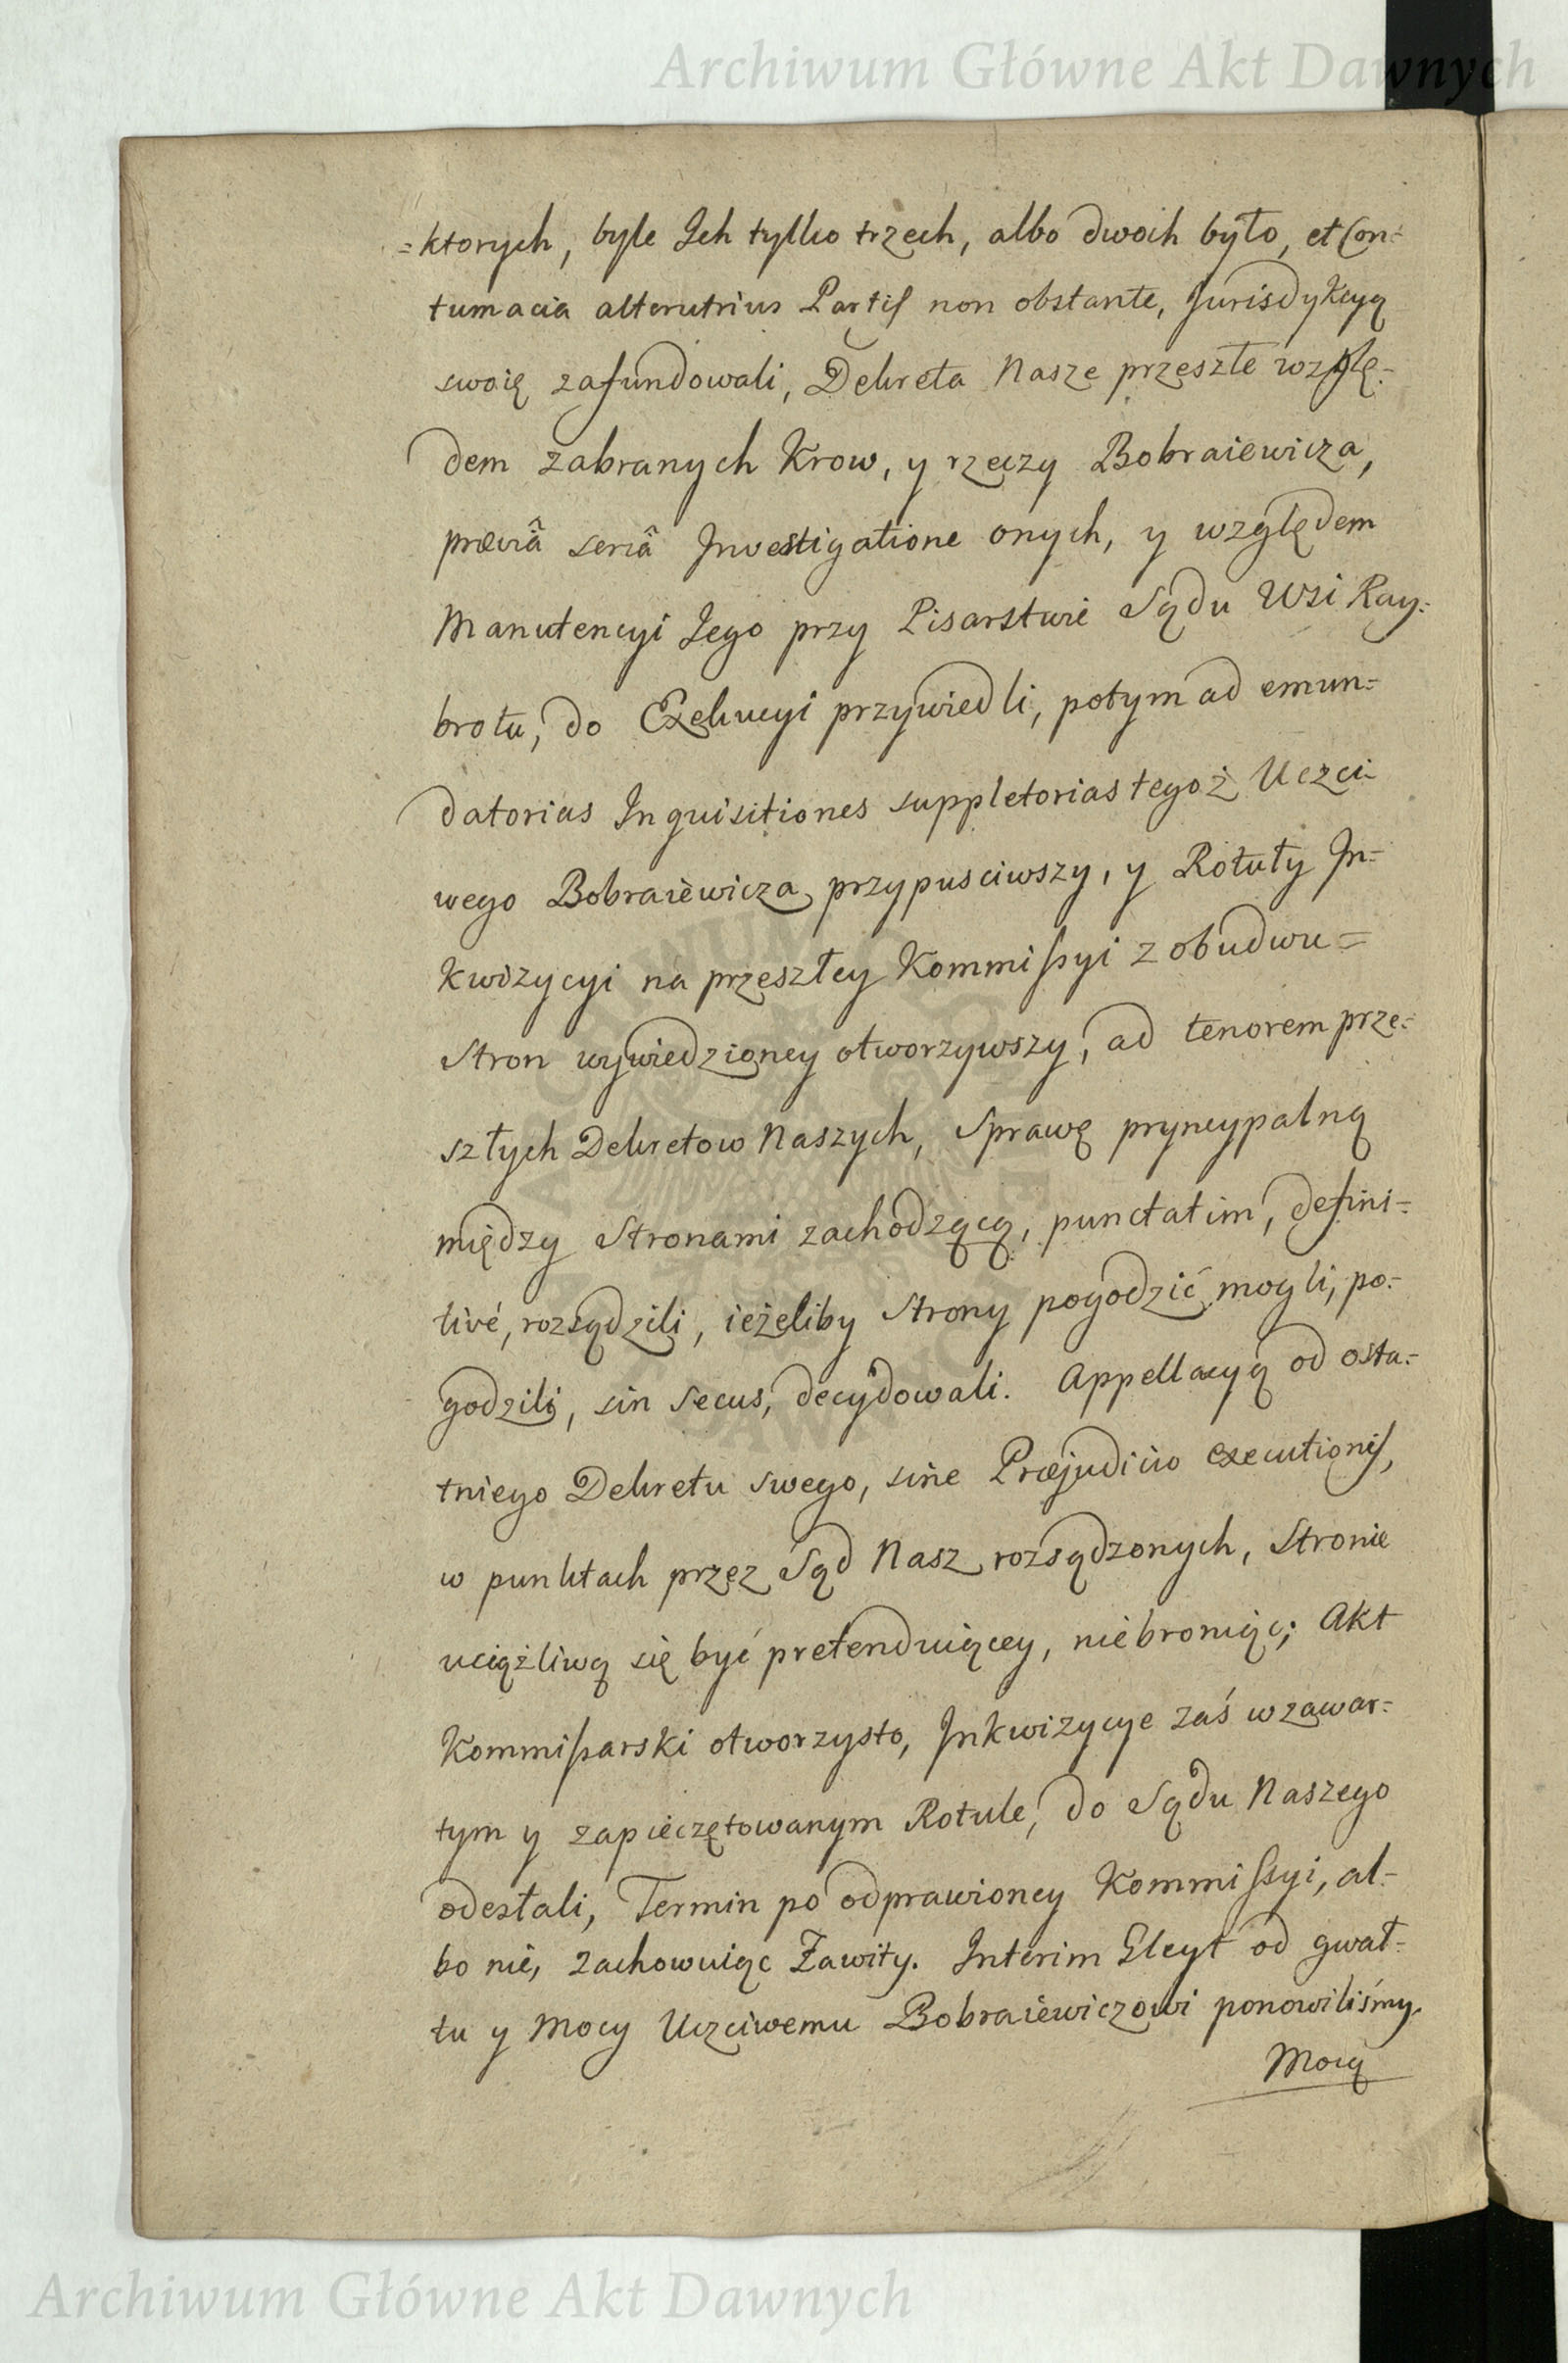 Archiwum Główne Akt Dawnych
=ktorych, byle Ich tylko trzech, albo dwoch było, et Con=
tumacia alterutrius Partis non obstante, Jurisdykcyą
swoię zafundowali, Dekreta Nasze przeszłe wzglę=
dem zabranych Krow, y rzeczy Bobraiewicza,
præviâ seriâ Investigatione onych, y względem
Manutencyi Jego przy Pisarstwie Sądu Wsi Ray=
brotu, do Exekucyi przywiedli, potym ad emun=
datorias Inquisitiones suppletorias tegoż Uczci=
wego Bobraiewicza przypusciwszy, y Rotuły In=
kwizycyi na przeszłey Kommissyi z obudwu=
Stron wywiedzioney otworzywszy, ad tenorem prze=
szłych Dekretow Naszych, Sprawę pryncypalną
między Stronami zachodzącą, punctatim, defini=
tivé, rozsądzili, ieżeliby Strony pogodzić mogli, po=
godzili, sin secus, decydowali. Appellacyą od osta=
tniego Dekretu swego, sine Præjudicio executionis,
w punktach przez Sąd Nasz rozsądzonych, Stronie
uciążliwą się być pretenduiącey, niebroniąc; Akt
Kommissarski otworzysto, Inkwizycye zaś w zawar=
tym y zapieczętowanym Rotule, do Sądu Naszego
odesłali, Termin po odprawioney Kommissyi, al=
bo nie, zachowuiąc Zawity. Interim Gleyt od gwał=
tu y Mocy Uczciwemu Bobraiewiczowi ponowiliśmy.
Mocą
Archiwum Główne Akt Dawnych